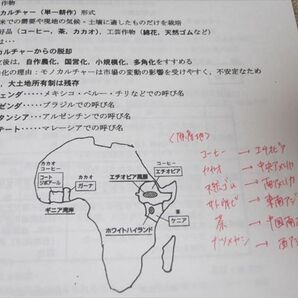 作物
カルチャー（単一耕作）形式
米での需要や現地の気候・土壌に適したものだけを栽培
好品（コーヒー，茶，カカオ），工芸作物（綿花，天然ゴムなど）
形式―
カルチャーからの脱却
後は，自作農化，国営化，小規模化，多角化をすすめる
化の理由：モノカルチャーは市場の変動の影響を受けやすく，不安定なため
，大土地所有制は残存
ェンダ……メキシコ・ペルー・チリなどでの呼び名
ゼンダ……ブラジルでの呼び名
タンシア…アルゼンチンでの呼び名
テート……マレーシアでの呼び名
カカオ
コーヒー
コート
ジボアール
カカオ
ガーナ
ギニア湾岸
コーヒー
エチオピア
エチオピア高原
茶
ケニア
ホワイトハイランド
コーヒー → エチオピア
カカオ → 中央アメリカ
天然ゴム → 南アメリカ
茶 → 中国南
ナツメヤシ →